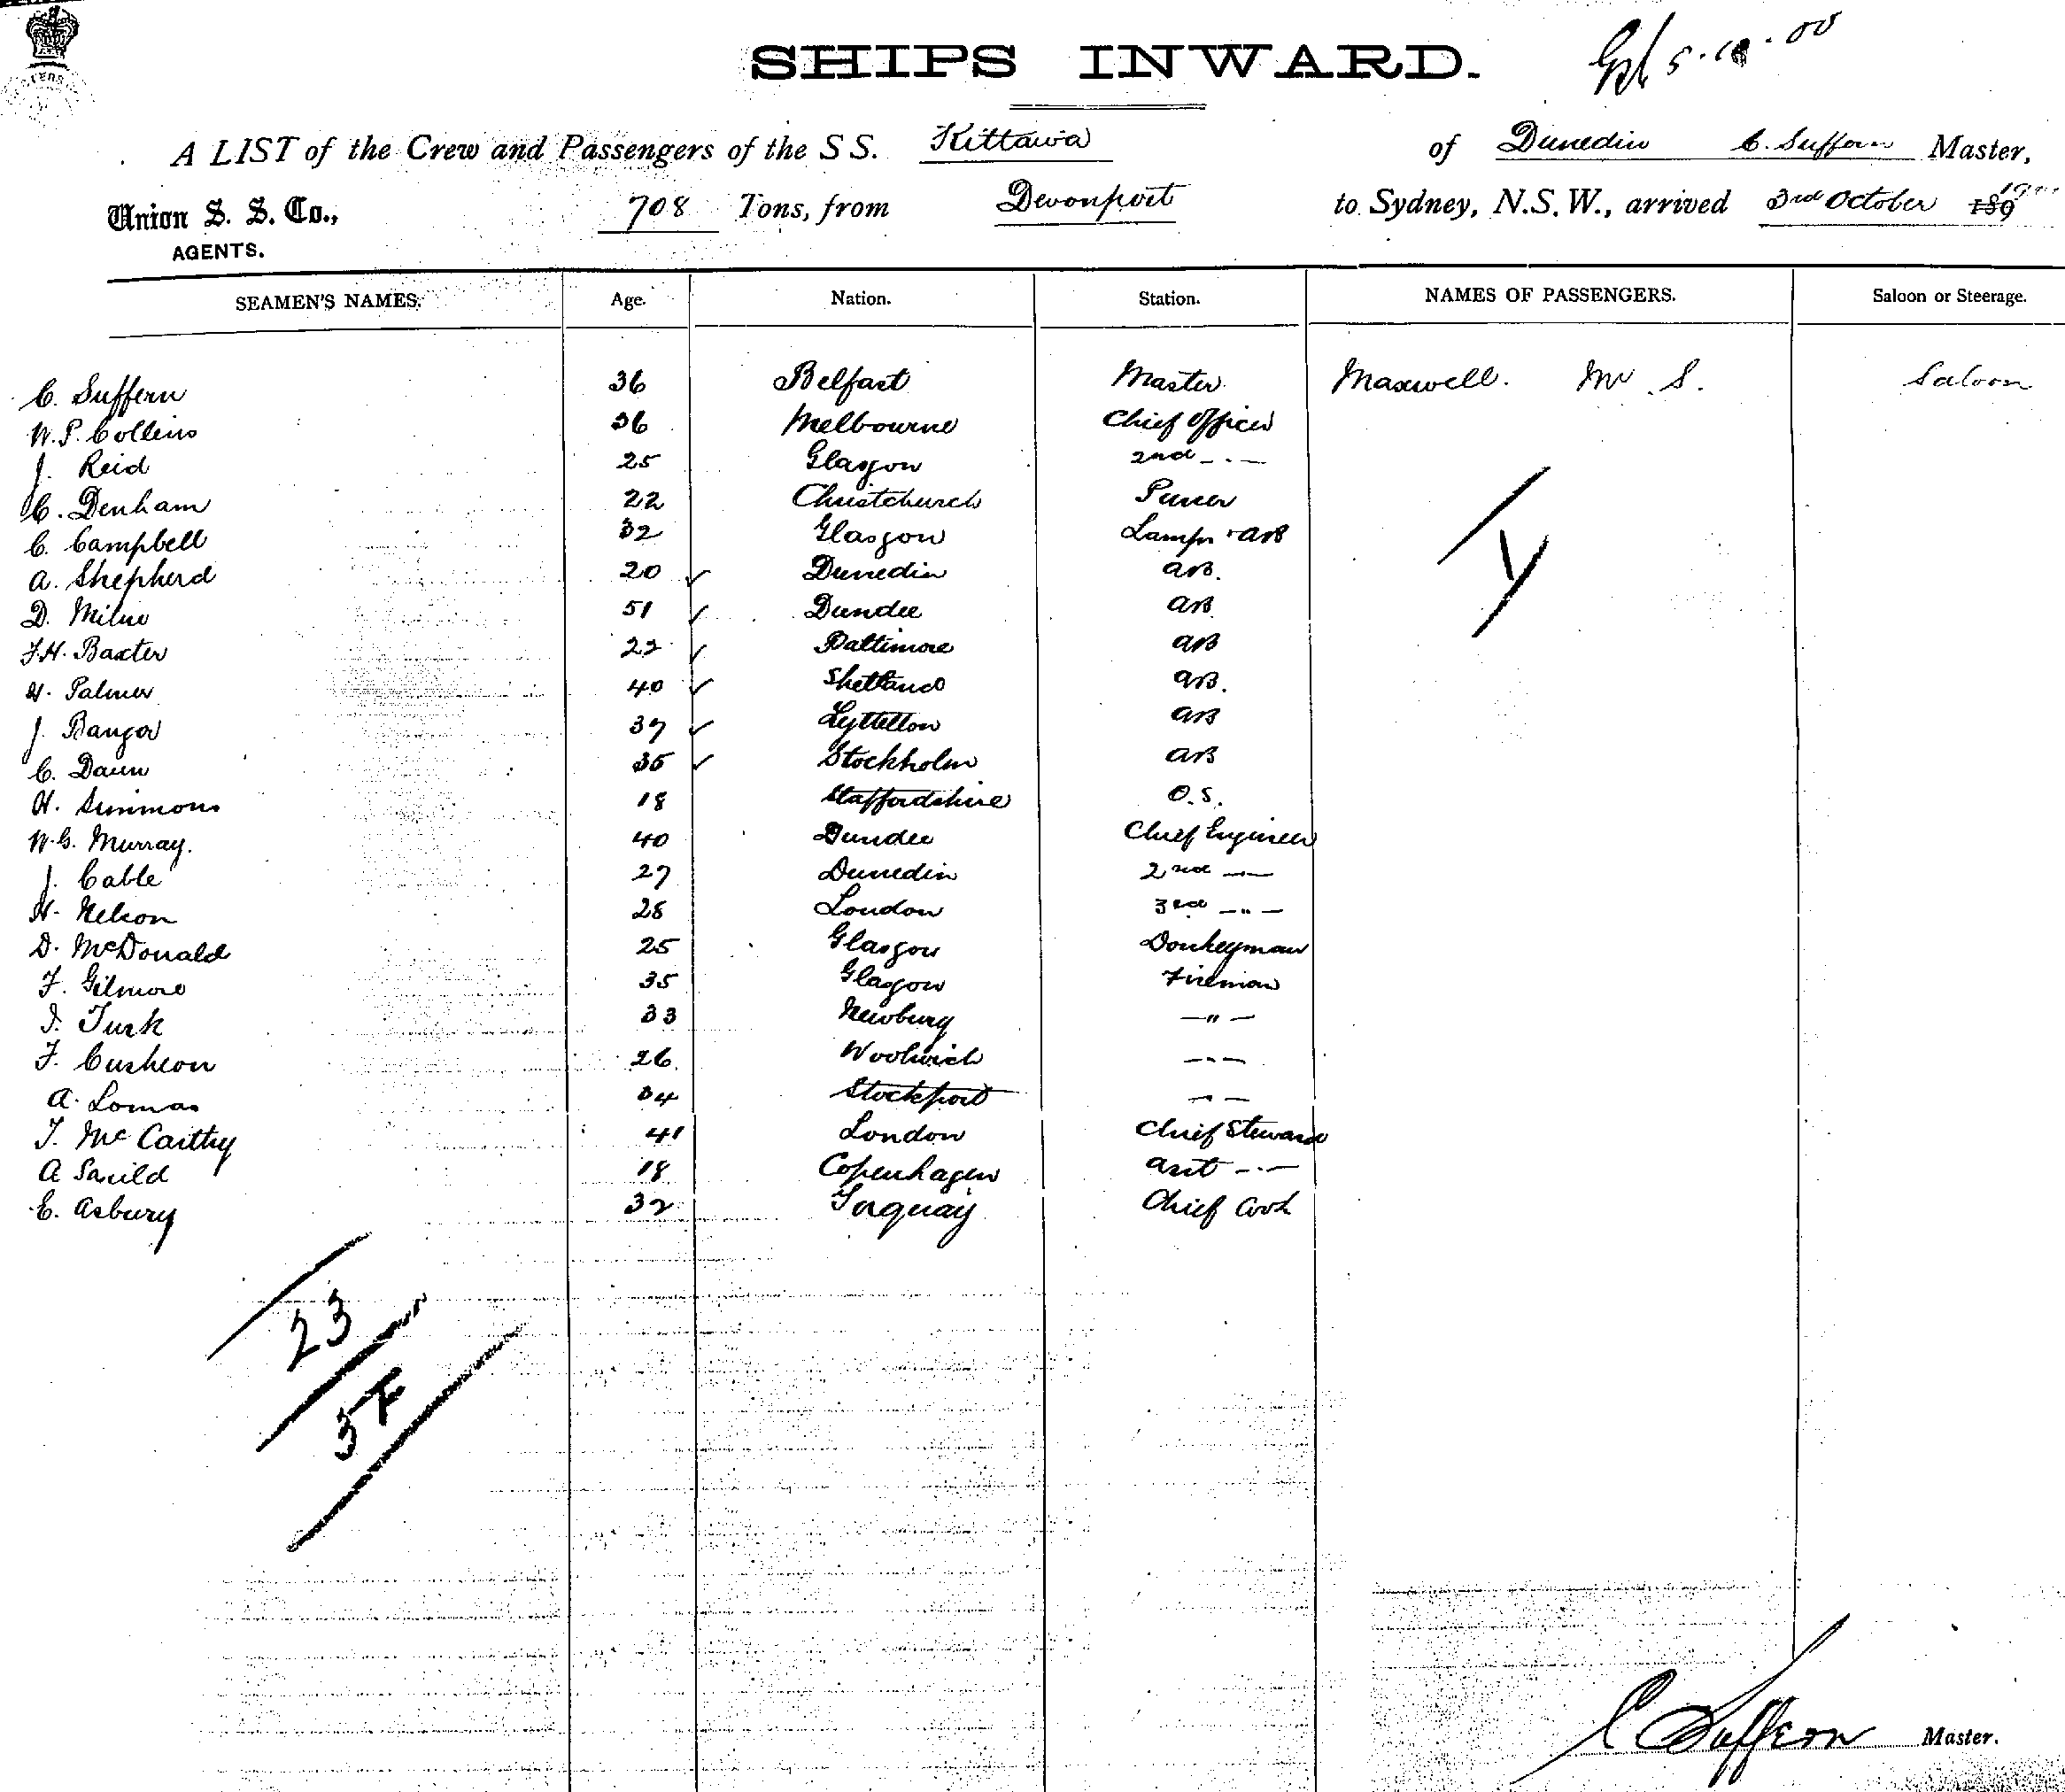 SHIPS INWARD.
5.10.00
A LIST of the Crew and Passengers of the S S. Kittawa of Dunedin C. Suffern Master,
Union S. S. Co., 708 Tons, from Devonport to Sydney, N.S.W., arrived 3rd October 189
AGENTS.
SEAMEN'S NAMES. Age. Nation. Station. NAMES OF PASSENGERS. Saloon or Steerage.
C. Suffern 36 Belfast Master Maxwell. Mr S. Saloon
W.P. Collins 36 Melbourne Chief Officer
J. Reid 25 Glasgow 2nd - " -
C. Denham 22 Christchurch Purser
C. Campbell 32 Glasgow Lamps + AB
A. Shepherd 20 ✓ Dunedin AB.
D. Milne 51 ✓ Dundee AB
F.H. Baxter 22 ✓ Baltimore AB
H. Palmer 40 ✓ Shetland AB.
J. Bangor 37 ✓ Lyttelton AB
C. Daun 35 ✓ Stockholm AB
H. Simmons 18 Staffordshire O.S.
W.G. Murray. 40 Dundee Chief Engineer
J. Cable 27 Dunedin 2nd - " -
H. Nelson 28 London 3rd - " -
D. McDonald 25 Glasgow Donkeyman
F. Gilmore 35 Glasgow Fireman
J. Turk 33 Newbury - " -
F. Cusheon 26 Woolwich - " -
A. Lomas 34 Stockport - " -
T. McCarthy 41 London Chief Steward
A 18 Copenhagen Asst - " -
E. Asbury 32 Torquay Chief Cook
23
5F
C Suffern Master.